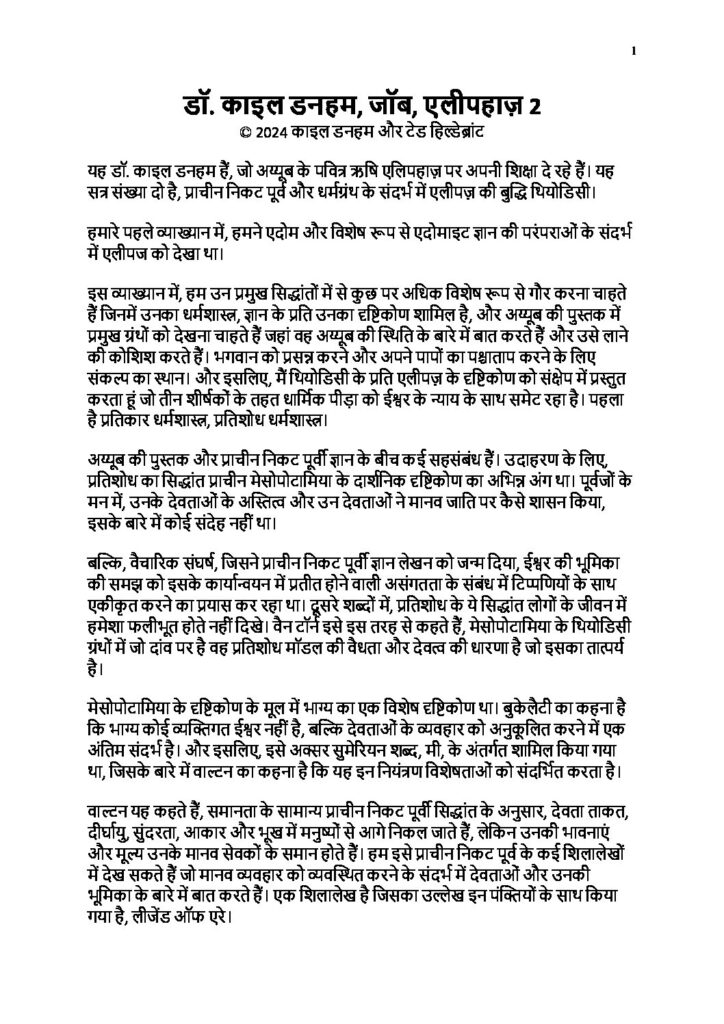 1
डॉ. काइल डनहम, जॉब, एलीपहाज़ 2
© 2024 काइल डनहम और टेड हिल्डेब्रांट
यह डॉ. काइल डनहम हैं, जो अय्यूब के पवित्र ऋषि एलिपहाज़ पर अपनी शिक्षा दे रहे हैं। यह
सत्र संख्या दो है, प्राचीन निकट पूर्व और धर्मग्रंथ के संदर्भ में एलीपज़ की बुद्धि थियोडिसी।
हमारे पहले व्याख्यान में, हमने एदोम और विशेष रूप से एदोमाइट ज्ञान की परंपराओं के संदर्भ
में एलीपज को देखा था।
इस व्याख्यान में, हम उन प्रमुख सिद्धांतों में से कुछ पर अधिक विशेष रूप से गौर करना चाहते
हैं जिनमें उनका धर्मशास्त्र, ज्ञान के प्रति उनका दृष्टिकोण शामिल है, और अय्यूब की पुस्तक में
प्रमुख ग्रंथों को देखना चाहते हैं जहां वह अय्यूब की स्थिति के बारे में बात करते हैं और उसे लाने
की कोशिश करते हैं। भगवान को प्रसन्न करने और अपने पापों का पश्चाताप करने के लिए
संकल्प का स्थान। और इसलिए, मैं थियोडिसी के प्रति एलीपज़ के दृष्टिकोण को संक्षेप में प्रस्तुत
करता हूं जो तीन शीर्षकों के तहत धार्मिक पीड़ा को ईश्वर के न्याय के साथ समेट रहा है। पहला
है प्रतिकार धर्मशास्त्र, प्रतिशोध धर्मशास्त्र।
अय्यूब की पुस्तक और प्राचीन निकट पूर्वी ज्ञान के बीच कई सहसंबंध हैं। उदाहरण के लिए,
प्रतिशोध का सिद्धांत प्राचीन मेसोपोटामिया के दार्शनिक दृष्टिकोण का अभिन्न अंग था। पूर्वजों के
मन में, उनके देवताओं के अस्तित्व और उन देवताओं ने मानव जाति पर कैसे शासन किया,
इसके बारे में कोई संदेह नहीं था।
बल्कि, वैचारिक संघर्ष, जिसने प्राचीन निकट पूर्वी ज्ञान लेखन को जन्म दिया, ईश्वर की भूमिका
की समझ को इसके कार्यान्वयन में प्रतीत होने वाली असंगतता के संबंध में टिप्पणियों के साथ
एकीकृत करने का प्रयास कर रहा था। दूसरे शब्दों में, प्रतिशोध के ये सिद्धांत लोगों के जीवन में
हमेशा फलीभूत होते नहीं दिखे। वैन टॉर्न इसे इस तरह से कहते हैं, मेसोपोटामिया के थियोडिसी
ग्रंथों में जो दांव पर है वह प्रतिशोध मॉडल की वैधता और देवत्व की धारणा है जो इसका तात्पर्य
है।
मेसोपोटामिया के दृष्टिकोण के मूल में भाग्य का एक विशेष दृष्टिकोण था। बुकेलैटी का कहना है
कि भाग्य कोई व्यक्तिगत ईश्वर नहीं है, बल्कि देवताओं के व्यवहार को अनुकूलित करने में एक
अंतिम संदर्भ है। और इसलिए, इसे अक्सर सुमेरियन शब्द, मी, के अंतर्गत शामिल किया गया
था, जिसके बारे में वाल्टन का कहना है कि यह इन नियंत्रण विशेषताओं को संदर्भित करता है।
वाल्टन यह कहते हैं, समानता के सामान्य प्राचीन निकट पूर्वी सिद्धांत के अनुसार, देवता ताकत,
दीर्घायु, सुंदरता, आकार और भूख में मनुष्यों से आगे निकल जाते हैं, लेकिन उनकी भावनाएं
और मूल्य उनके मानव सेवकों के समान होते हैं। हम इसे प्राचीन निकट पूर्व के कई शिलालेखों
में देख सकते हैं जो मानव व्यवहार को व्यवस्थित करने के संदर्भ में देवताओं और उनकी
भूमिका के बारे में बात करते हैं। एक शिलालेख है जिसका उल्लेख इन पंक्तियों के साथ किया
गया है, लीजेंड ऑफ एरे।